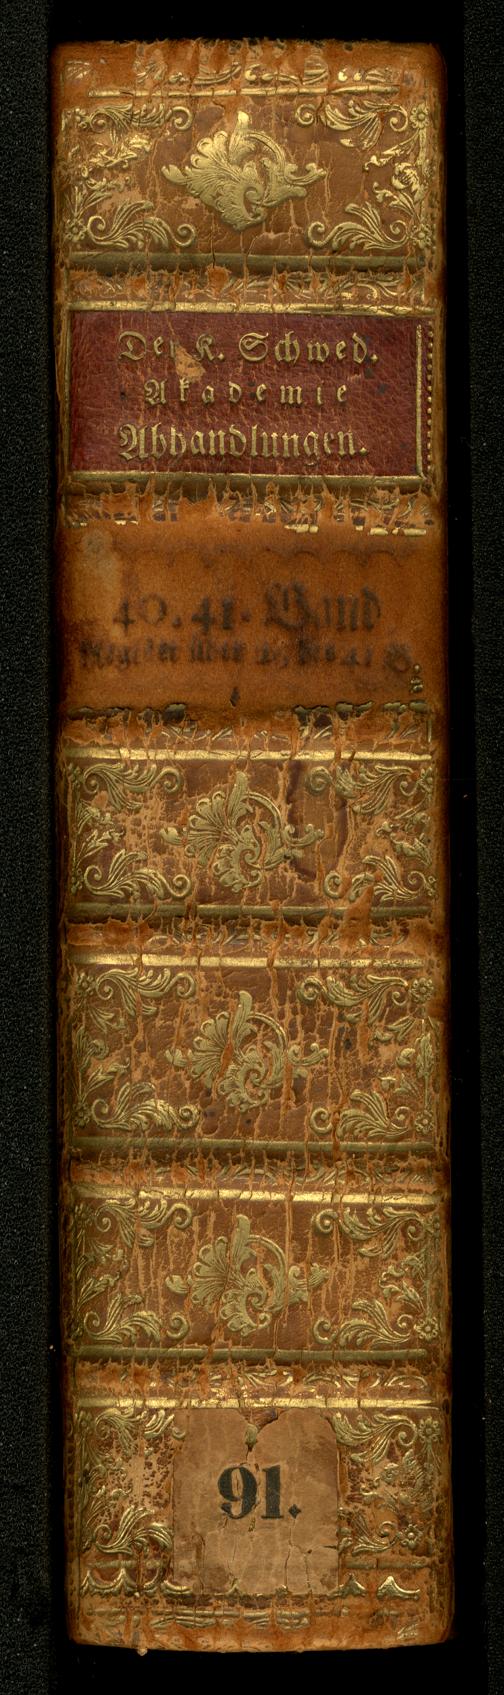 Der K. Schwed.
Akademie
Abhandlungen.
40. 41. Band
Register über 26, bis 41 B.
91.